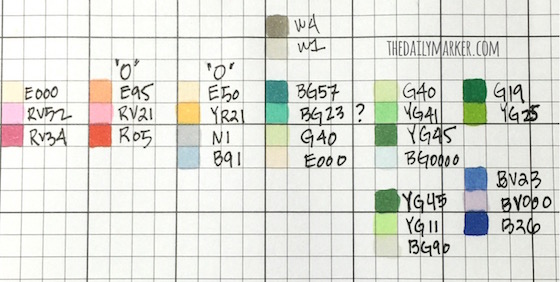 W4
W1
THEDAILYMARKER.COM
"O"
E000
RV52
RV34
E95
RV21
R05
"O"
E50
YR21
N1
B91
BG57
BG23 ?
G40
E000
G40
YG41
YG45
BG0000
YG45
YG11
BG90
G19
YG25
BV23
BV000
B26